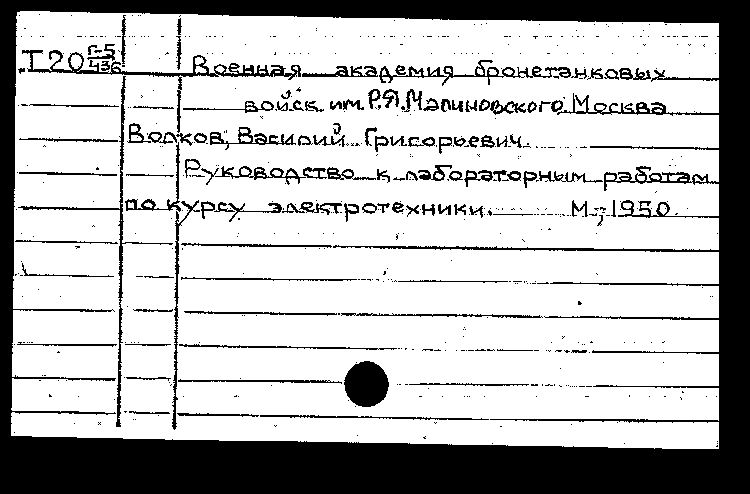 Т20 Г-5/436 Военная академия бронетанковых
войск им. Р.Я.Малиновского. Москва
Волков, Василий Григорьевич.
Руководство к лабораторным работам
по курсу электротехники. М., 1950.